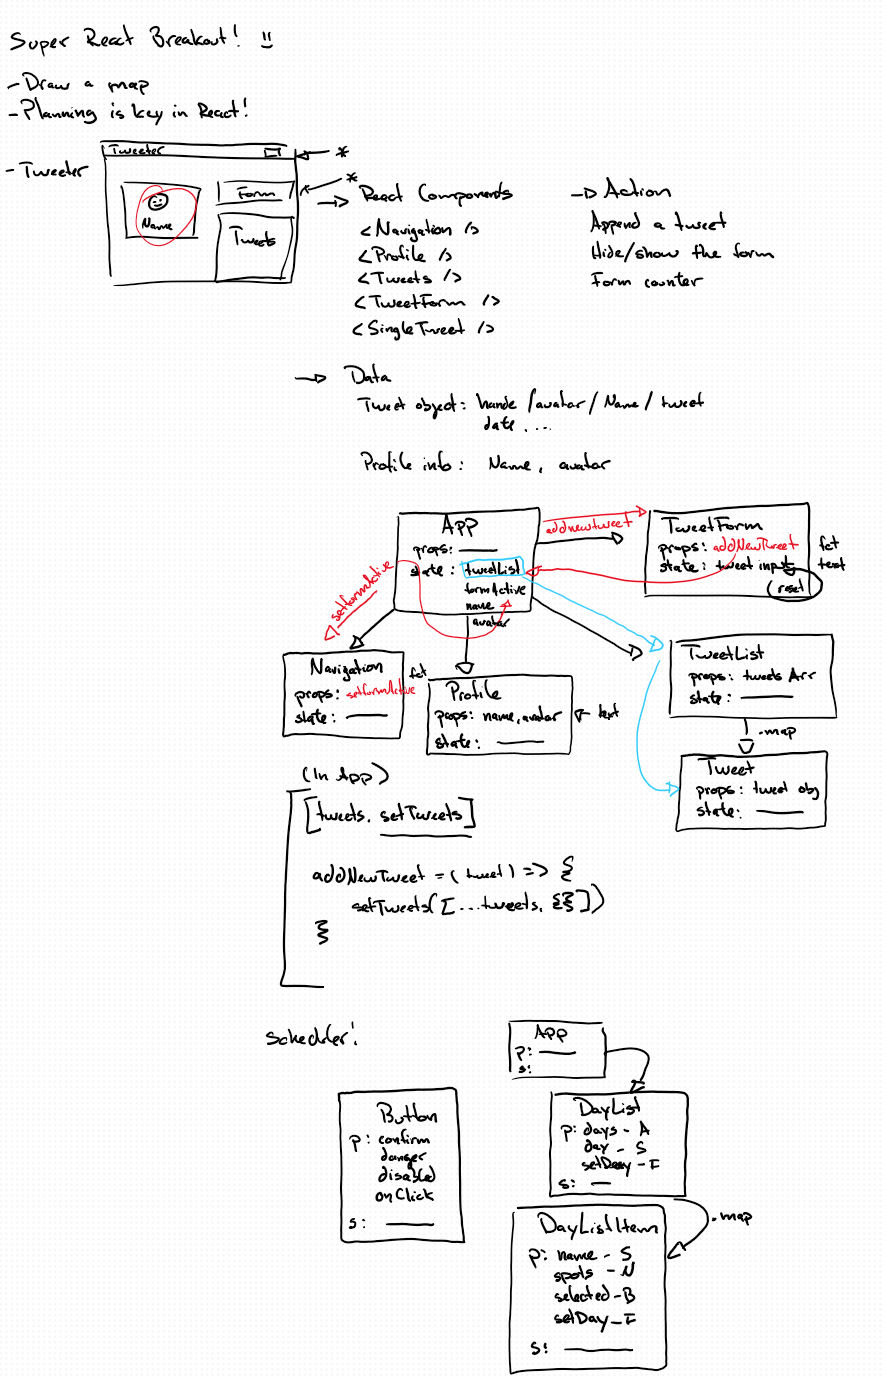 Super React Breakout! !!
- Draw a map
- Planning is key in React!
- Tweeter
Tweeter
*
*
Form
Name
Tweets
→ React Components
<Navigation />
<Profile />
<Tweets />
<TweetForm />
<SingleTweet />
→ Action
Append a tweet
Hide/show the form
Form counter
→ Data
Tweet object: hande /avatar / Name / tweet
date, ...
Profile info: Name, avatar
App
props: ——
state: tweetList
formActive
name
avatar
addnewtweet
setformActive
TweetForm
props: addNewTweet fct
state: tweet input text
(reset)
Navigation fct
props: setformActive
state: ——
Profile
props: name, avatar ← text
state: ——
TweetList
props: tweets Arr
state: ——
.map
Tweet
props: tweet obj
state: ——
(In App)
[tweets, setTweets]
addNewTweet = (tweet) => {
setTweets([...tweets, {}])
}
Scheduler!
App
p: ——
s:
Button
p: confirm
danger
disabled
onClick
s: ——
DayList
p: days - A
day - S
setDay - F
s: —
.map
DayListItem
p: name - S
spots - N
selected - B
setDay - F
s: ——